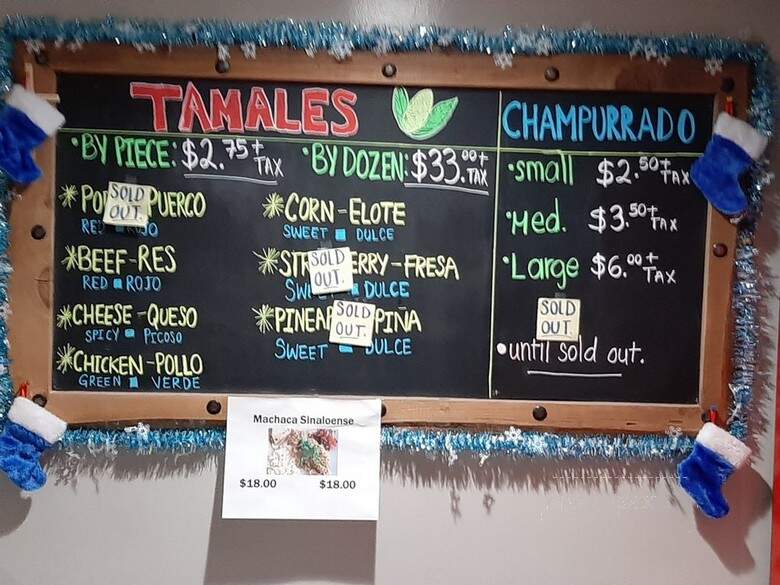 TAMALES
• BY PIECE: $2.75+ TAX • BY DOZEN: $33.00+ TAX
* PO SOLD OUT. PUERCO
RE JO
* BEEF-RES
RED ROJO
* CHEESE-QUESO
SPICY PICOSO
* CHICKEN-POLLO
GREEN VERDE
* CORN-ELOTE
SWEET DULCE
* STR SOLD OUT. ERRY-FRESA
SW DULCE
* PINEAP SOLD OUT. PIÑA
SWEET DULCE
CHAMPURRADO
• small $2.50+ TAX
• Med. $3.50+ TAX
• Large $6.00+ TAX
SOLD OUT.
• until sold out.
Machaca Sinaloense
$18.00 $18.00